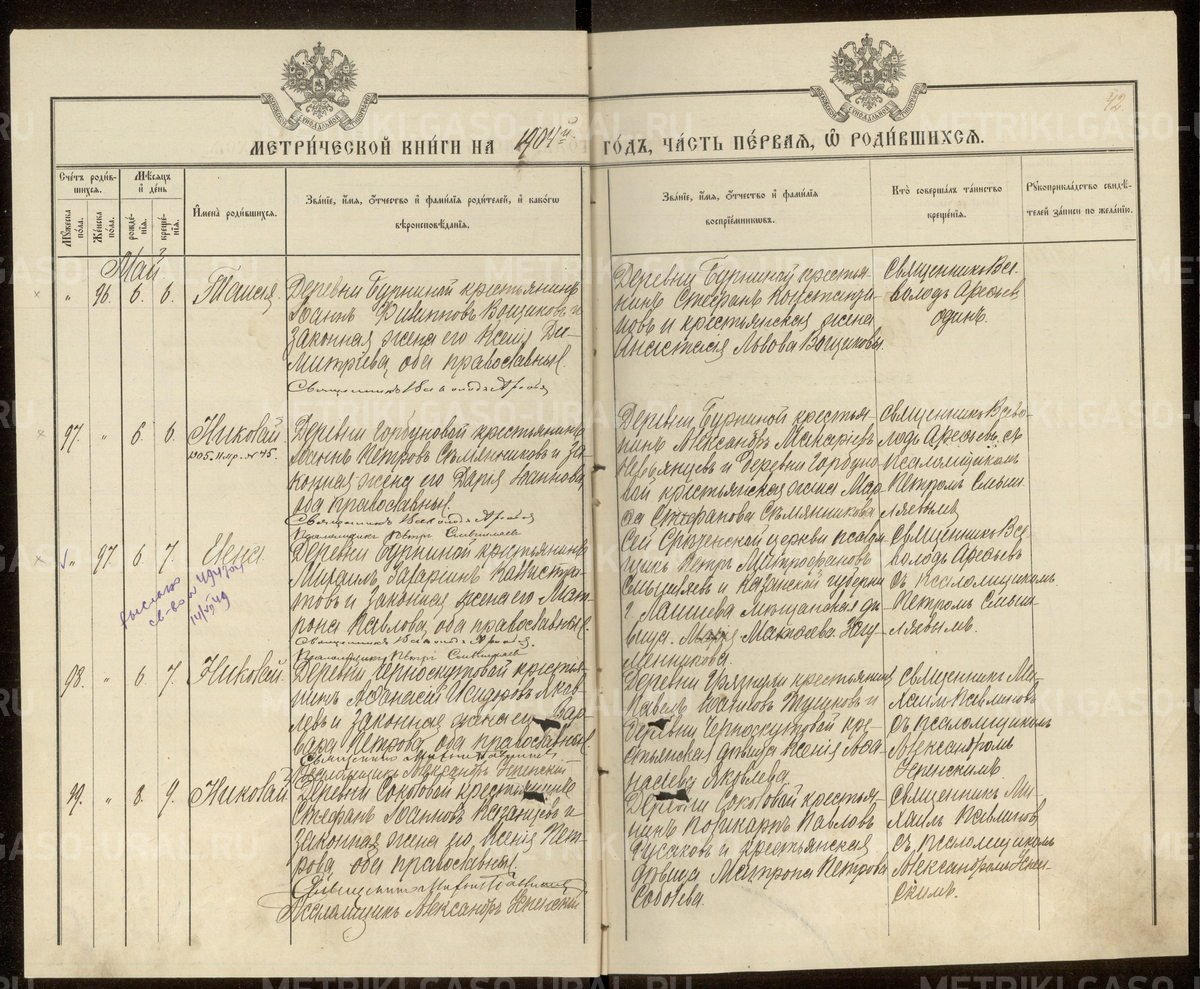 42.
МЕТРИ́ЧЕСКОЙ КНИ́ГИ НА 1904й ГО́ДЪ, ЧА́СТЬ ПЕ́РВАЯ, Ѡ РОДИ́ВШИХСЯ.
Сче́тъ роди́в-
шихся.
Мѣ́сяцъ
и де́нь
Мꙋ́жеска по́ла.
Же́нска по́ла.
рожде́-
нїя.
креще́-
нїя.
И҆мена̀ роди́вшихся.
Зва́нїе, и҆́мя, ѻ҆́тчество и҆ фами́лїя роди́телей, и҆ како́гѡ
вѣроисповѣ́данїя.
Зва́нїе, и҆́мя, ѻ҆́тчество и҆ фами́лїя
воспрїе́мникѡвъ.
Кто̀ соверша́лъ та́инство
креще́нїя.
Рꙋкоприкла́дство свидѣ́-
телей за́писи по жела́нїю.
Май
" 96. 6. 6. Таисія
Деревни Бурниной крестьянинъ
Іоаннъ Филипповъ Вощиковъ и
законная жена его Ксенія Ди-
митріева, оба православные.
Священникъ Всеволодъ Арефьев
Деревни Бурниной крестья-
нинъ Стефанъ Константи-
новъ и крестьянская жена
Анастасія Львова Вощиковы.
Священникъ Все-
володъ Арефьев
одинъ.
97. " 6. 6. Николай
1905. II пр. № 45.
Деревни Горбуновой крестьянинъ
Іоаннъ Петровъ Сѣмянниковъ и за-
конная жена его Дарія Іоаннова,
оба православные.
Священникъ Всеволодъ Арефьев
Псаломщикъ Петръ Смышляев
Деревни Бурниной крестья-
нинъ Александръ Макаріевъ
и деревни Горбуно-
вой крестьянская жена Мар-
ѳа Стефанова Сѣмянникова
Священникъ Всево-
лодъ Арефьевъ съ
псаломщикомъ
Петромъ Смыш-
ляевымъ.
" 97. 6. 7. Елена
выслано
св-во №
14/VI 49
Деревни Бурниной крестьянинъ
Михаилъ Захаринъ Калистра-
товъ и законная жена его Мат-
рона Павлова, оба православные.
Священникъ Всеволодъ Арефьев.
Псаломщикъ Петръ Смышляев
Сей Срѣтенской церкви псалом-
щикъ Петръ Митрофановъ
Смышляевъ и Казанской губерніи
г. Лаишева мѣщанская дѣ-
вица Марія Матѳеева
Священникъ Все-
володъ Арефьевъ
съ псаломщикомъ
Петромъ Смыш-
ляевымъ.
98. " 6. 7. Николай.
Деревни Черноскутовой крестья-
нинъ Аѳанасій Исидоровъ Яков-
левъ и законная жена его Вар-
вара Петрова, оба православные.
Священникъ Михаилъ Павлинов
Псаломщикъ Александръ Успенскій
Деревни Грязнухи крестьянинъ
Павелъ и
деревни Черноскутовой кре-
стьянская дѣвица Ксенія Аѳа-
насіева Яковлева.
Священникъ Ми-
хаилъ Павлиновъ
съ псаломщикомъ
Александромъ
Успенскимъ.
99. " 8. 9. Николай
Деревни Соколовой крестьянинъ
Стефанъ Іоанновъ Казанцевъ и
законная жена его Ксенія Пет-
рова, оба православные.
Священникъ Михаилъ Павлинов
Псаломщикъ Александръ Успенскій
Деревни Соколовой крестья-
нинъ Поликарпъ Павловъ
Русаковъ и крестьянская
дѣвица Матрона Петрова
Соболева.
Священникъ Ми-
хаилъ Павлиновъ
съ псаломщикомъ
Александромъ Успен-
скимъ.
METRIKI.GASO-URAL.RU